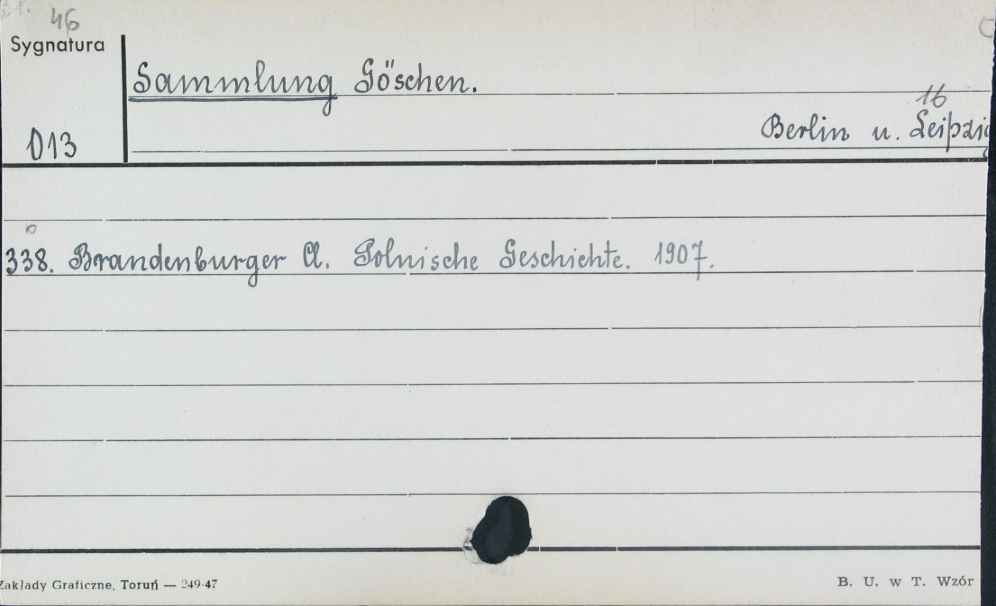 46
Sygnatura
Sammlung Göschen.
16
Berlin u. Leipzig
013
338. Brandenburger Cl. Polnische Geschichte. 1907.
Zakłady Graficzne, Toruń — 249-47
B. U. w T. Wzór